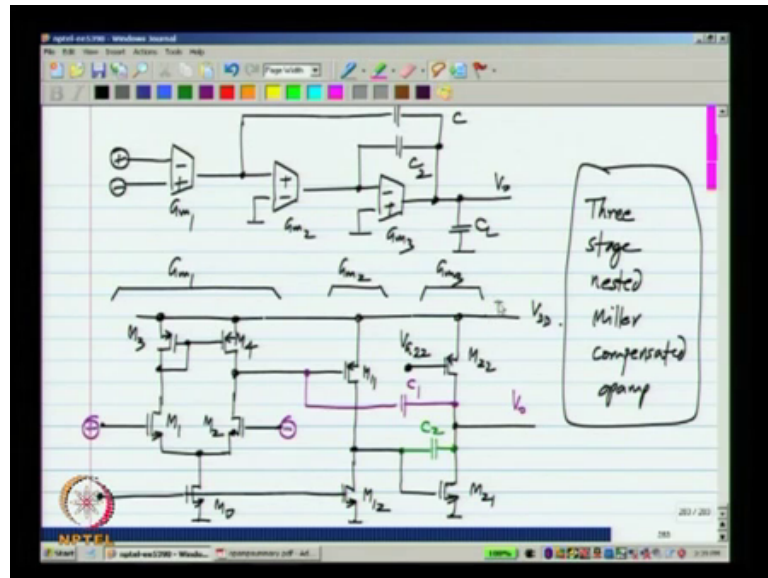 nptel-ee5390 - Windows Journal
File Edit View Insert Actions Tools Help
Page Width
C
C2
+
-
-
+
Gm1
+
-
Gm2
-
+
Gm3
V0
CL
Three
stage
nested
Miller
compensated
opamp
Gm1
Gm2
Gm3
VDD
M3
M4
M11
VG22
M22
C1
V0
+
M1
M2
-
C2
M0
M12
M21
NPTEL
283 / 283
Start
nptel-ee5390 - Windo...
100%